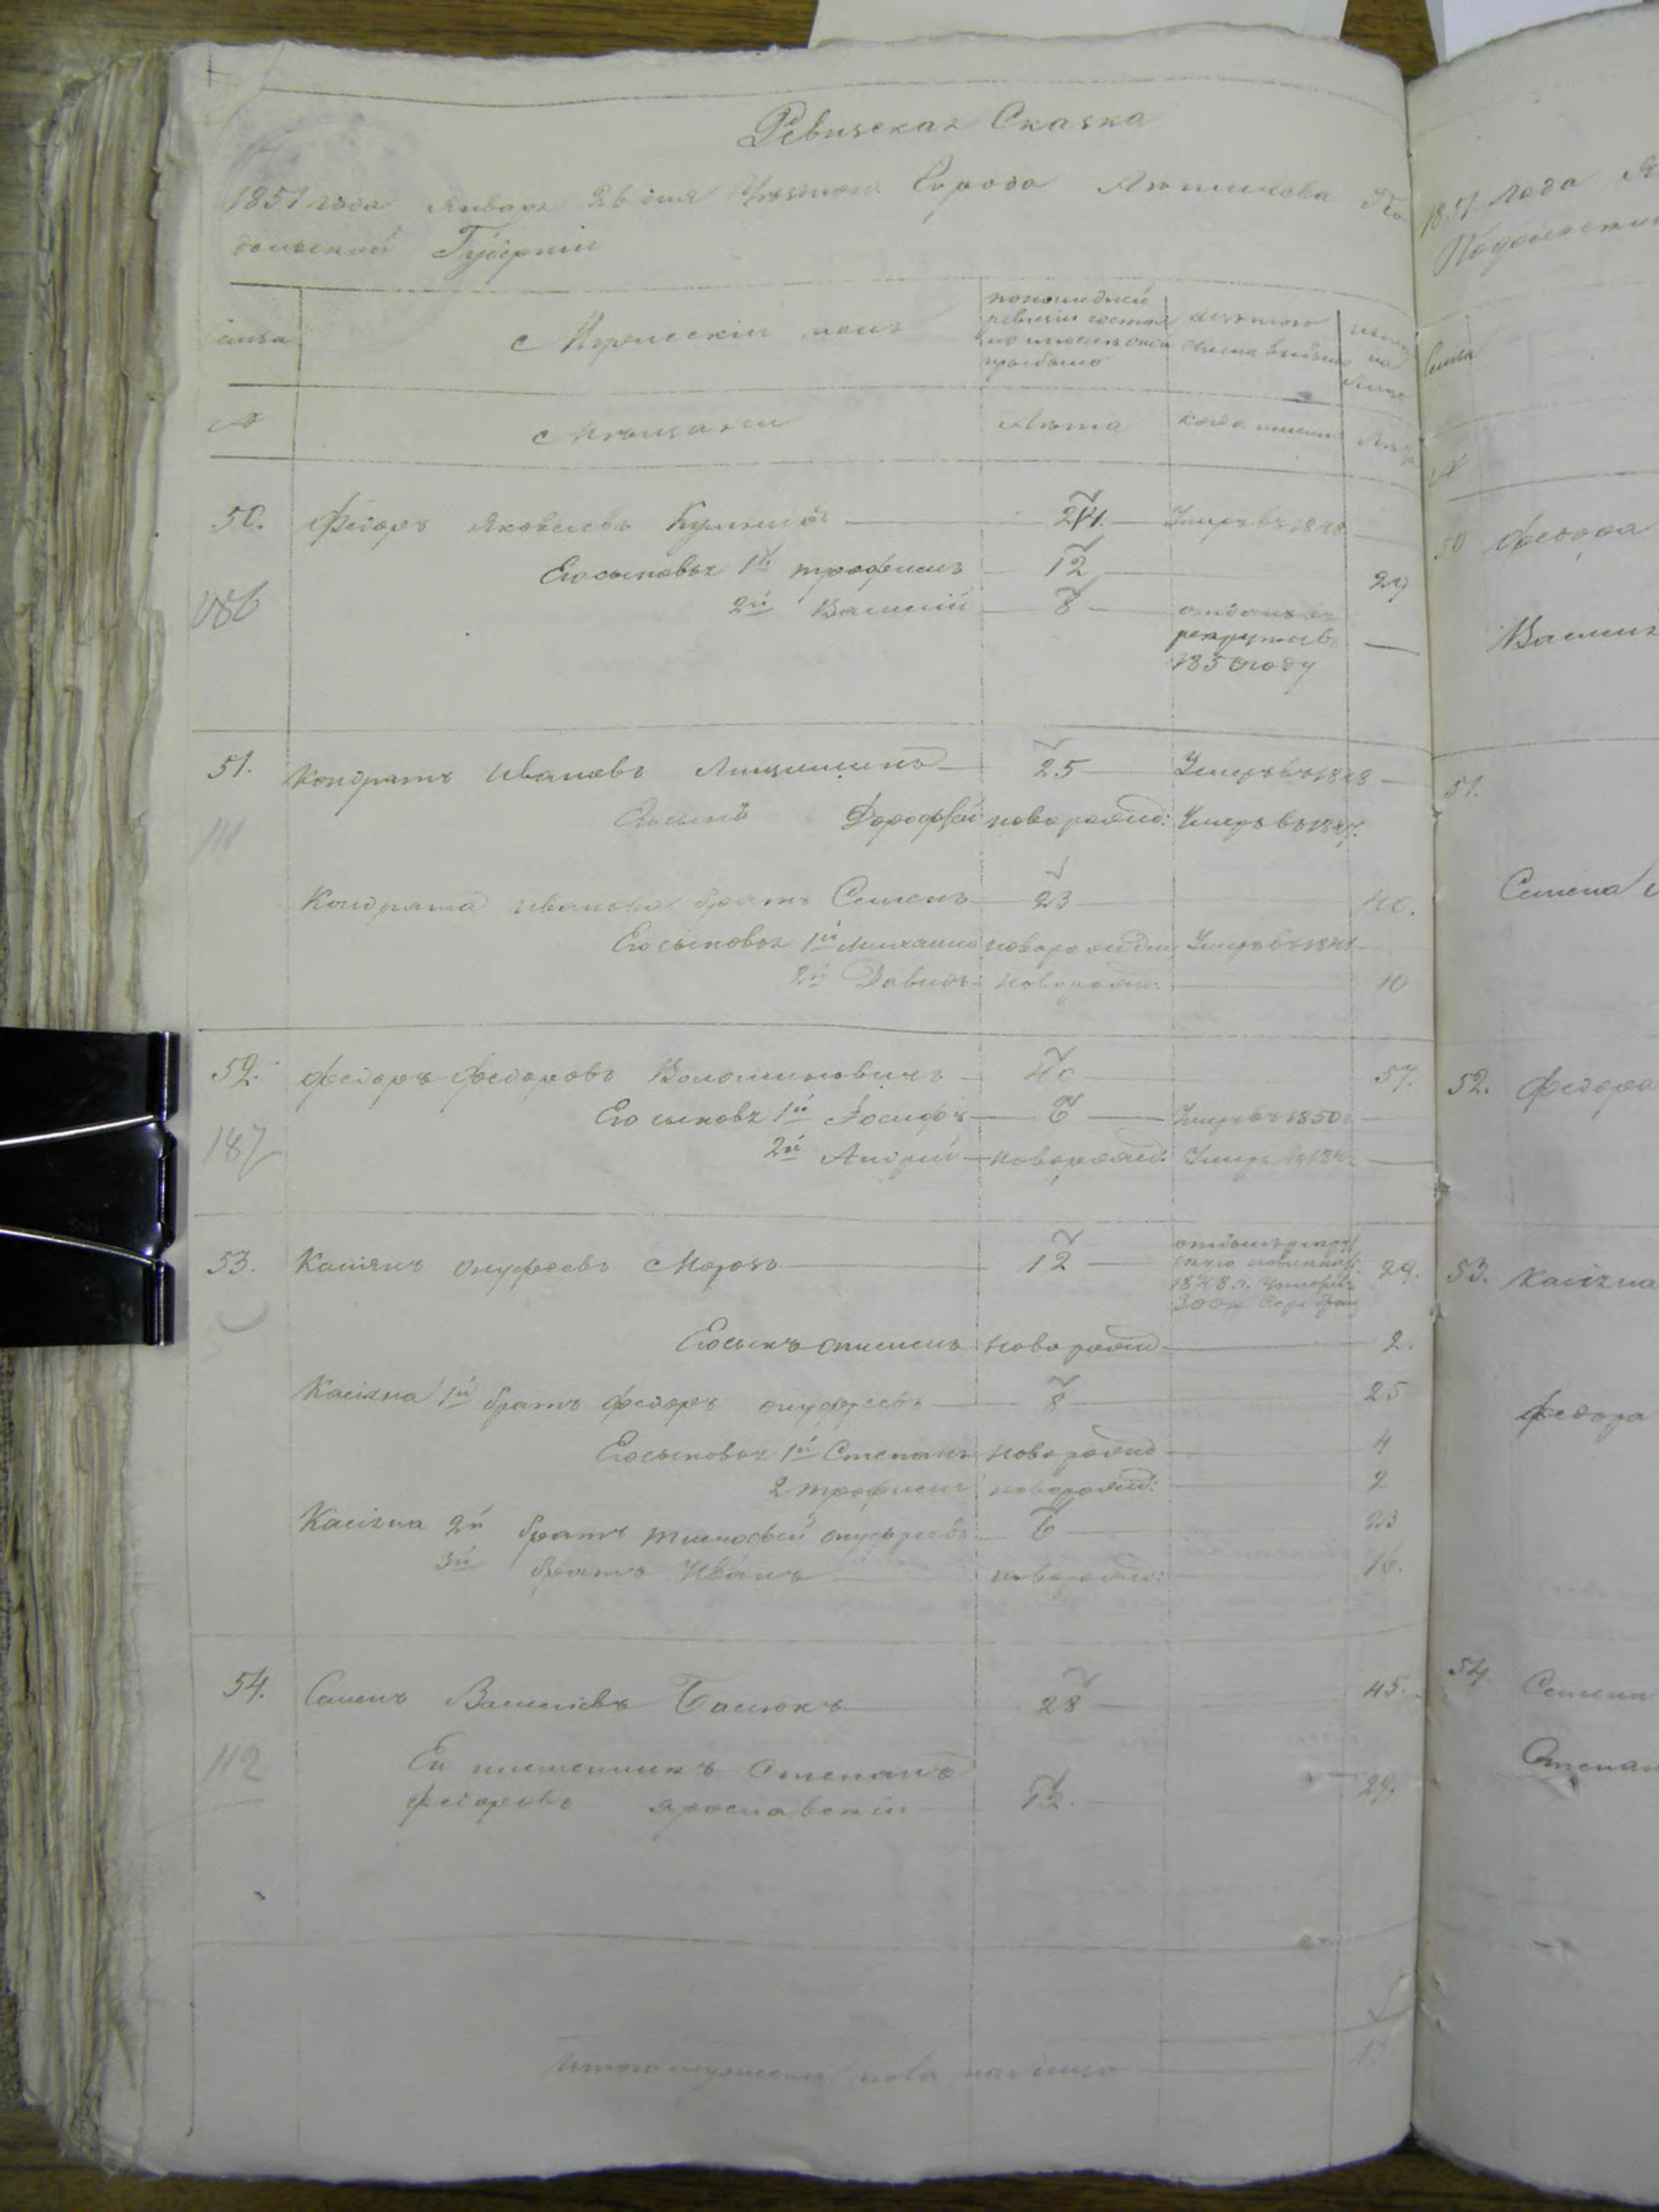 Ревизская Сказка
1851 года Января 26 дня Уѣзднаго Города Лѣтичева По
дольской Губерніи
Семья
Мужескій полъ
по последней ревизіи состоя
ло и после оной прибыло
Изъ того числа выбыло
на лицо
№
Мѣщане
Лѣта
Когда именно
Лѣта
50. Федоръ Яковлевъ 21 Умеръ въ 1848
Его сыновья 1й Трофимъ 12 29
186
2й Василій 8 отданъ въ
рекруты въ
1850 году
51. Кондратъ Ивановъ 25 Умеръ въ 1848
Его сынъ Дорофей новорожд: Умеръ въ 1847.
111
Кондрата Иванова братъ Семенъ 23 40.
Его сыновья 1й Михаилъ новорожден Умеръ въ 1841
2й Давидъ новорожд: 10
52. Федоръ Федоровъ Волошиновичъ 40 57.
Его сыновья 1й Іосифъ 6 Умеръ въ 1850
187
2й Андрей новорожд: Умеръ
53. Касіянъ Онуфреевъ Морозъ 12
1848 г.
300 р. Серебромъ
29.
Его сынъ новорожд 2.
Касіяна 1й братъ Федоръ Онуфреевъ 8 25
Его сыновья 1й Степанъ новорожд 4
2 Трофимъ новорожд: 2
Касіяна 2й братъ Тимофей Онуфреевъ 6 23
3й братъ Иванъ новорожд: 16.
54. Семенъ Василіевъ Басюкъ 28 45.
112
Его племенникъ Степанъ
Федоровъ Ярославскій 12. 29.
Итого мужеска пола на лицо
1851 Года Я
Подольской
Семья
№
50 Федора
Василія
51.
Семена
52. Федора
53. Касіяна
Федора
54. Семена
Степана